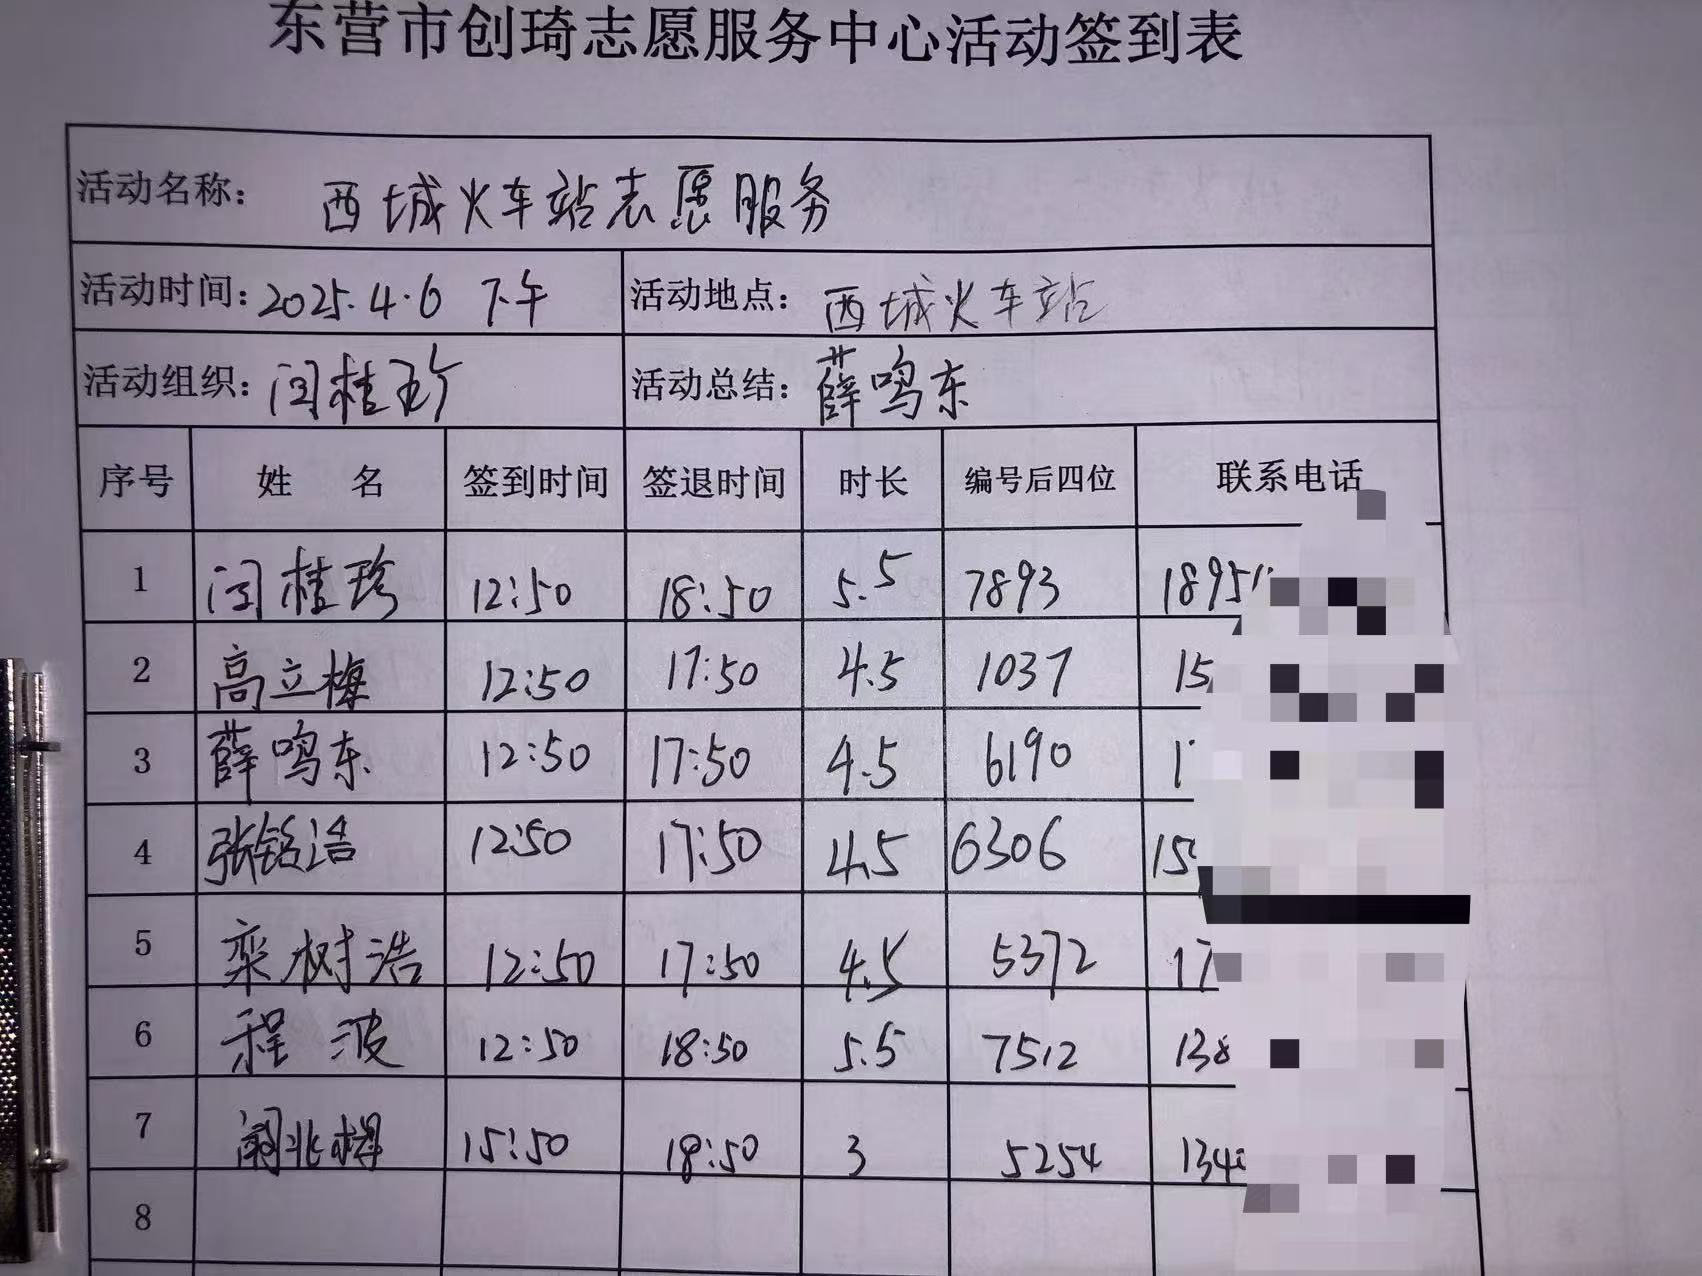 东营市创琦志愿服务中心活动签到表
活动名称： 西城火车站志愿服务
活动时间：2025.4.6 下午 活动地点： 西城火车站
活动组织：闫桂珍 活动总结：薛鸣东
序号 姓 名 签到时间 签退时间 时长 编号后四位 联系电话
1 闫桂珍 12:50 18:50 5.5 7893 1895
2 高立梅 12:50 17:50 4.5 1037 15
3 薛鸣东 12:50 17:50 4.5 6190 1
4 张铭浩 12:50 17:50 4.5 6306 15
5 栾树浩 12:50 17:50 4.5 5372 17
6 程波 12:50 18:50 5.5 7512 138
7 15:50 18:50 3 5254 134
8